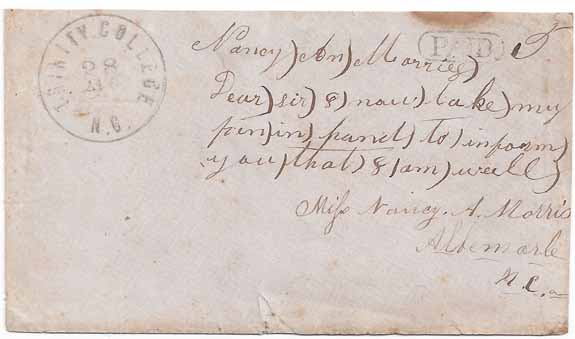 TRINITY COLLEGE
28
N.C.
PAID 5
Nancy) An) Morries)
Dear) sir) &) now) take) my
pen) in) hand) to) inform)
you) that) &) am) well)
Miss Nancy. A. Morris
Albemarle
N.C.